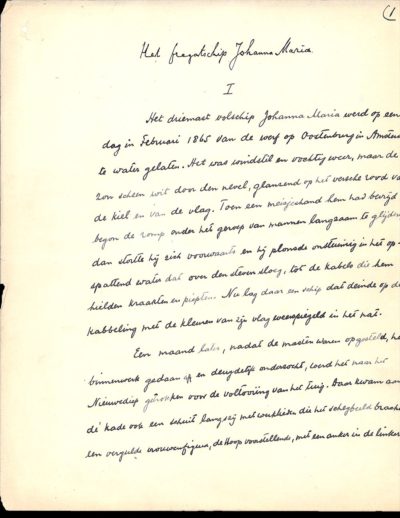 (1
Het fregatschip Johanna Maria
I
Het driemast volschip Johanna Maria werd op een
dag in Februari 1865 van de werf op Oostenburg in Amster
te water gelaten. Het was windstil en vochtig weer, maar de
zon scheen wit door den nevel, glanzend op het versche rood va
de kiel en van de vlag. Toen een meisjeshand hem had bevrijd
begon de romp onder het geroep van mannen langzaam te glijden
dan stortte hij zich voorwaarts en hij plonsde onstuimig in het op-
spattend water dat over den steven sloeg, tot de kabels die hem
hielden kraakten en piepten. Nu lag daar een schip dat deinde op de
kabbeling met de kleuren van zijn vlag weerspiegeld in het nat.
Een maand later, nadat de masten waren opgesteld, he
binnenwerk gedaan en deugdelijk onderzocht, werd het naar het
Nieuwediep getrokken voor de voltooiing van het tuig. Daar kwam aan
de kade ook een schuit langszij met werklieden die het schegbeeld brach
een vergulde vrouwenfiguur, de Hoop voorstellende, met een anker in de linker